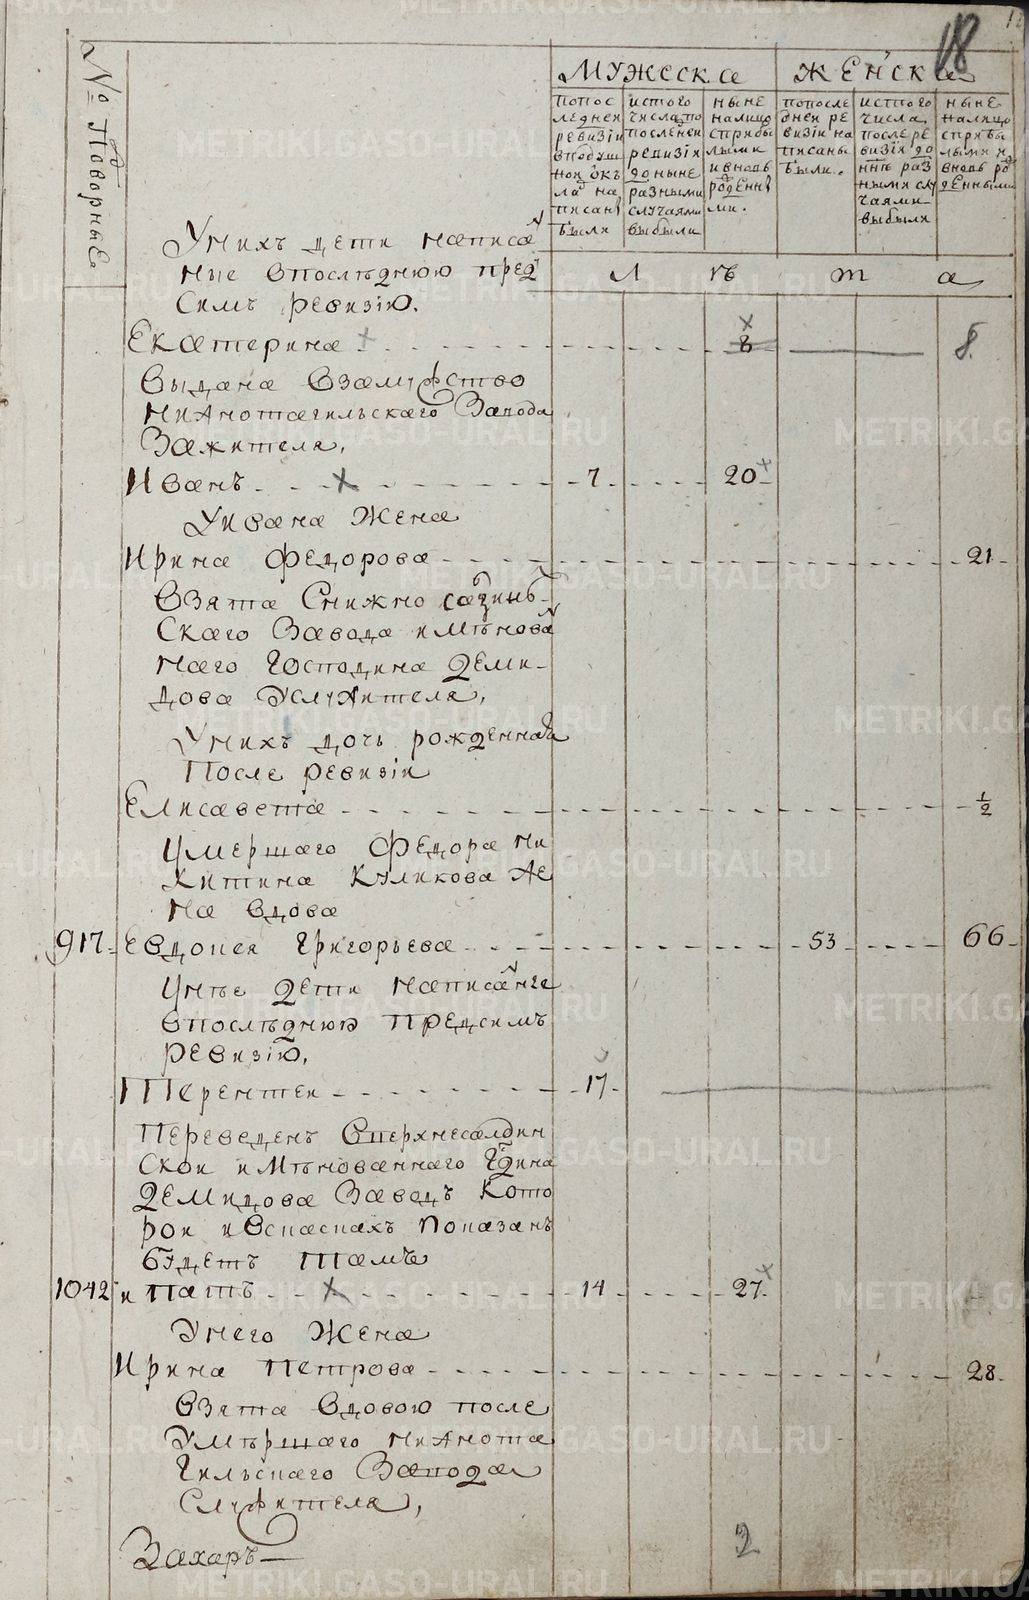 18
№ Подворные
МУЖЕСКА
ЖЕНСКА
попос
леднеи
ревизiи
вподуш
нои окъ
ла на
писан
были
истого
числа по
посленеи
ревизiи
до ныне
разными
случаями
выбыли
ныне
налицо
сприбы
лыми
и вновь
рожденн
ми.
попосле
днеи ре
визiи на
писаны
были.
истого
числа
после ре
визiи до
ныне раз
ными слу
чаями
выбыли
ныне
налицо
сприбы
лыми и
вновь ро
жденными
Л ѣ т а
Унихъ дети написа
ные впослѣднюю пред
симъ ревизiю.
Екатерина 8 8
выдана взамужство
нижнотагильскаго Завода
Зажителя,
Иванъ 7 20
Уивана Жена
Ирина Федорова 21
Взята Снижно салдинъ
Скаго Завода имѣнова
наго Господина Деми
дова Услужителя,
Унихъ дочь рожденная
После ревизiи
Елисавета 1/2
Умершаго Федора Ни
китина Куликова Же
на вдова
917 Евдокея Григорьева 53 66
Унѣе дети написаные
впослѣднюю предсимъ
ревизiю,
Терентеи 17
Переведенъ Вверхнесалдин
Скои имѣнованнаго Гдина
Демидова Заводъ Кото
рои ивспаскахъ показанъ
будетъ тамъ
1042 ипатъ 14 27
Унего Жена
Ирина Петрова 28
Взята вдовою после
Умѣршаго нижнота
гильскаго Завода
Служителя,
Захаръ 2